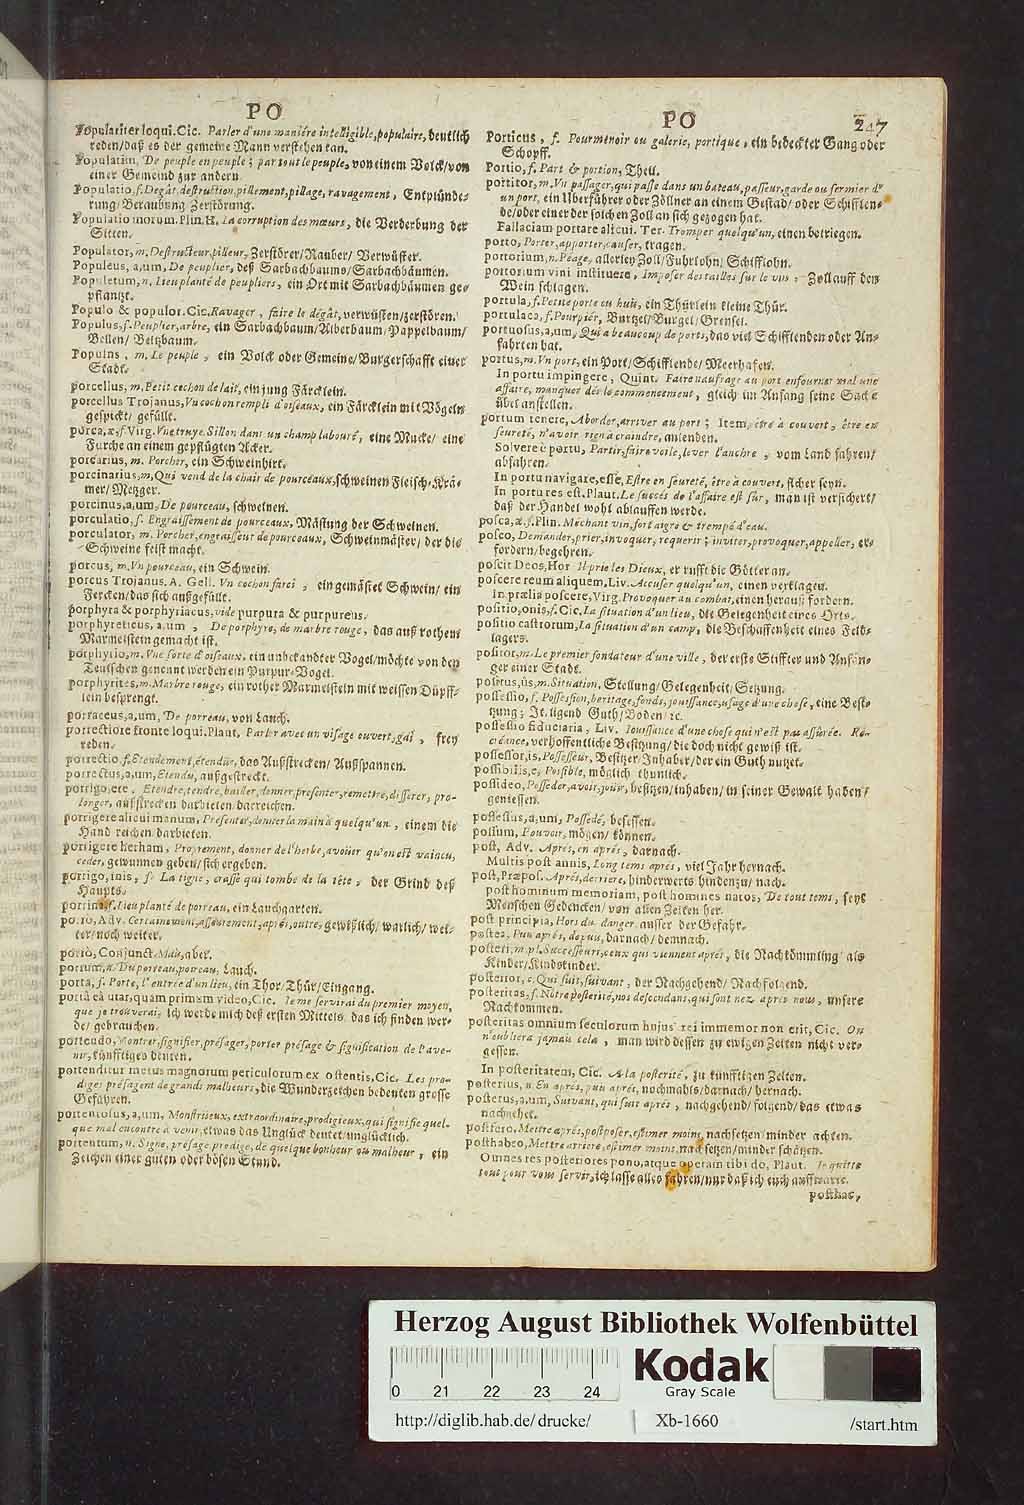 PO
Populariter loqui. Cic. Parler d'une maniére intelligible, populaire, deutlich
reden/ daß es der gemeine Mann verstehen kan.
Populatim, De peuple en peuple; par tout le peuple, von einem Volck/ von
einer Gemeind zur andern
Populatio, f. Degât, destruction, pillement, pillage, ravagement, Entplünde-
rung/ Beraubung Zerstörung.
Populatio morum. Plin. H. La corruption des mœurs, die Verderbung der
Sitten.
Populator, m. Destructeur, pilleur, Zerstörer/ Rauber/ Verwüster.
Populeus, a, um, De peuplier, deß Sarbachbaums/ Sarbachbäumen.
Populetum, n. Lieu planté de peupliers, ein Ort mit Sarbachbäumen ge-
pflantzt.
Populo & populor. Cic. Ravager, faire le dégât, verwüsten/ zerstören.
Populus, f. Peuplier, arbre, ein Sarbachbaum/ Alberbaum/ Pappelbaum/
Bellen/ Beltzbaum.
Populus, m. Le peuple, ein Volck oder Gemeine/ Burgerschafft einer
Stadt.
porcellus, m. Petit cochon de lait, ein jung Färcklein.
porcellus Trojanus, Vn cochon rempli d'oiseaux, ein Färcklein mit Vögeln
gespickt/ gefüllt.
porca, æ, f. Virg. Vne truye. Sillon dans un champ labouré, eine Mucke/ eine
Furche an einem gepflügten Acker.
porcarius, m. Porcher, ein Schweinhirt.
porcinarius, m, Qui vend de la chair de pourceaux, schweinen Fleisch-Krä-
mer/ Metzger.
porcinus, a, um, De pourceau, schweinen.
porculatio, f. Engraissement de pourceaux, Mästung der Schweinen.
porculator, m. Porcher, engraisseur de pourceaux, Schweinmäster/ der die
Schweine feist macht.
porcus, m. Vn pourceau, ein Schwein.
porcus Trojanus. A. Gell. Vn cochon farci, ein gemästet Schwein/ ein
Fercken/ das sich außgefüllt.
porphyra & porphyriacus, vide purpura & purpureus.
porphyreticus, a, um, De porphyre, de marbre rouge, das auß rothem
Marmelstein gemacht ist.
porphyrio, m. Vne sorte d'oiseaux, ein unbekandter Vogel/ möchte von den
Teutschen genennt werden ein Purpur-Vogel.
porphyrites, m. Marbre rouge, ein rother Marmelstein mit weissen Düpff-
lein besprengt.
porraceus, a, um, De porreau, von Lauch.
porrectiore fronte loqui. Plaut, Parler avec un visage ouvert, gai, frey
reden.
porrectio, f. Etendement, étenduë, das Außstrecken/ Außspannen.
porrectus, a, um, Etendu, außgestreckt.
porrigo, ere, Etendre, tendre, bailler, donner, presenter, remettre, differer, pro-
longer, außstrecken darbieten darreichen.
porrigere alicui manum, Presenter, donner la main à quelqu'un, einem die
Hand reichen darbieten.
porrigere herbam, Proprement, donner de l'herbe, avoüer qu'on est vaincu,
ceder, gewunnen geben/ sich ergeben.
porrigo, inis, f. La tigne, crasse qui tombe de la tête, der Grind deß
Haupts.
porrina, f. Lieu planté de porreau, ein Lauchgarten.
porrò, Adv. Certainement, asseurement, aprés, outre, gewißlich/ warlich/ wei-
ter/ noch weiter.
porrò, Conjunct. Mais, aber.
porrum, n. Du porreau, poireau, Lauch.
porta, f. Porte, l'entrée d'un lieu, ein Thor/ Thür/ Eingang.
portâ eâ utar, quam primam video, Cic. Ie me servirai du premier moyen,
que je trouverai, ich werde mich deß ersten Mittels, das ich finden wer-
de/ gebrauchen.
portendo, Montrer, signifier, présager, porter présage & signification de l'ave-
nir, künfftiges deuten.
portenditur metus magnorum periculorum ex ostentis, Cic. Les pro-
diges présagent de grands malheurs, die Wunderzeichen bedeuten grosse
Gefahren.
portentosus, a, um, Monstrueux, extraordinaire, prodigieux, qui signifie quel-
que mal encontre à venir, etwas das Unglück deutet/ unglücklich.
portentum, n. Signe, présage prodige, de quelque bonheur ou malheur, ein
Zeichen einer guten oder bösen Stund.
PO 247
Porticus, f. Pourmenoir ou galerie, portique, ein bedeckter Gang oder
Schopff.
Portio, f. Part & portion, Theil.
portitor, m. Vn passager, qui passe dans un bateau, passeur, garde ou fermier d'
un port, ein Uberführer oder Zöllner an einem Gestad/ oder Schifflen-
de/ oder einer der solchen Zoll an sich gezogen hat.
Fallaciam portare alicui. Ter. Tromper quelqu'un, einen betriegen.
porto, Porter, apporter, causer, tragen.
portorium, n. Péage, allerley Zoll/ Fuhrlohn/ Schifflohn.
portorium vini instituere, Imposer des tailles sur le vin, Zoll auff den
Wein schlagen.
portula, f. Petite porte ou huis, ein Thürlein kleine Thür.
portulaca, f. Pourpiér, Burtzel/ Burgel/ Grensel.
portuosus, a, um, Qui a beaucoup de ports, das viel Schifflenden oder An-
fahrten hat.
portus, m. Vn port, ein Port/ Schifflende/ Meerhafen.
In portu impingere, Quint. Faire naufrage au port enfourner mal une
affaire, manquer dés le commencement, gleich im Anfang seine Sache
übel anstellen.
portum tenere, Aborder, arriver au port; Item, être à couvert, être en
seureté, n'avoir rien à craindre, anlenden.
Solvere è portu, Partir, faire voile, lever l'anchre, vom Land fahren/
abfahren.
In portu navigare, esse, Estre en seureté, être à couvert, sicher seyn.
In portu res est. Plaut. Le succés de l'affaire est sûr, man ist versichert/
daß der Handel wohl ablauffen werde.
posca, æ, f. Plin. Méchant vin, fort aigre & trempé d'eau.
posco, Demander, prier, invoquer, requerir; inviter, provoquer, appeller, er-
fordern/ begehren.
poscit Deos, Hor Il prie les Dieux, er rufft die Götter an.
poscere reum aliquem, Liv. Accuser quelqu'un, einen verklagen.
In prælia poscere, Virg. Provoquer au combat, einen herauß fordern.
positio, onis, f. Cic. La situation d'un lieu, die Gelegenheit eines Orts.
positio castrorum, La situation d'un camp, die Beschaffenheit eines Feld-
lagers.
positor, m. Le premier fondateur d'une ville, der erste Stiffter und Anfän-
ger einer Stadt.
positus, ûs, m. Situation, Stellung/ Gelegenheit/ Setzung.
possessio, f. Possession, heritage, fonds, jouissance, usage d'une chose, eine Besi-
tzung; It. ligend Guth/ Boden/ ꝛc.
possessio fiduciaria, Liv. Iouissance d'une chose qui n'est pas assûrée. Re-
créance, verhoffentliche Besitzung/ die doch nicht gewiß ist.
possessor, is, Possesseur, Besitzer/ Inhaber/ der ein Guth nutzet.
possibilis, e, Possible, möglich thunlich.
possideo, Posseder, avoir, jouïr, besitzen/ inhaben/ in seiner Gewalt haben/
geniessen.
possessus, a, um, Possedé, besessen.
possum, Pouvoir, mögen/ können.
post, Adv. Aprés, en aprés, darnach.
Multis post annis, Long tems aprés, viel Jahr hernach.
post, Præpos. Aprés, derriere, hinderwerts hindenzu/ nach.
post hominum memoriam, post homines natos, De tout tems, seyt
Menschen Gedencken/ von allen Zeiten her.
post principia, Hors du danger ausser der Gefahr.
postea, Puis aprés, depuis, darnach/ demnach.
posteri, m. pl. Successeurs, ceux qui viennent aprés, die Nachkömmling als
Kinder/ Kindskinder.
posterior, c. Qui suit, suivant, der Nachgehend/ Nachfolgend.
posteritas, f. Nôtre posterité, nos descendans, qui sont nez aprés nous, unsere
Nachkommen.
posteritas omnium seculorum hujus rei immemor non erit, Cic. On
n'oubliera jamais cela, man wird dessen zu ewigen Zeiten nicht ver-
gessen.
In posteritatem, Cic. A la posterité, zu künfftigen Zeiten.
posterius, n. En aprés, puis aprés, nochmahls/ darnach/ hernach.
posterus, a, um, Suivant, qui suit aprés, nachgehend/ folgend/ das etwas
nachgehet.
postfero, Mettre aprés, postposer, estimer moins, nachsetzen/ minder achten.
posthabeo, Mettre arriere, estimer moins, nachsetzen/ minder schätzen.
Omnes res posteriores pono, atque operam tibi do, Plaut. Ie quitte
tout pour vous servir, ich lasse alles fahren/ nur daß ich euch auffwarte.
posthac,
Herzog August Bibliothek Wolfenbüttel
Kodak
Gray Scale
0 21 22 23 24
http://diglib.hab.de/drucke/ Xb-1660 /start.htm